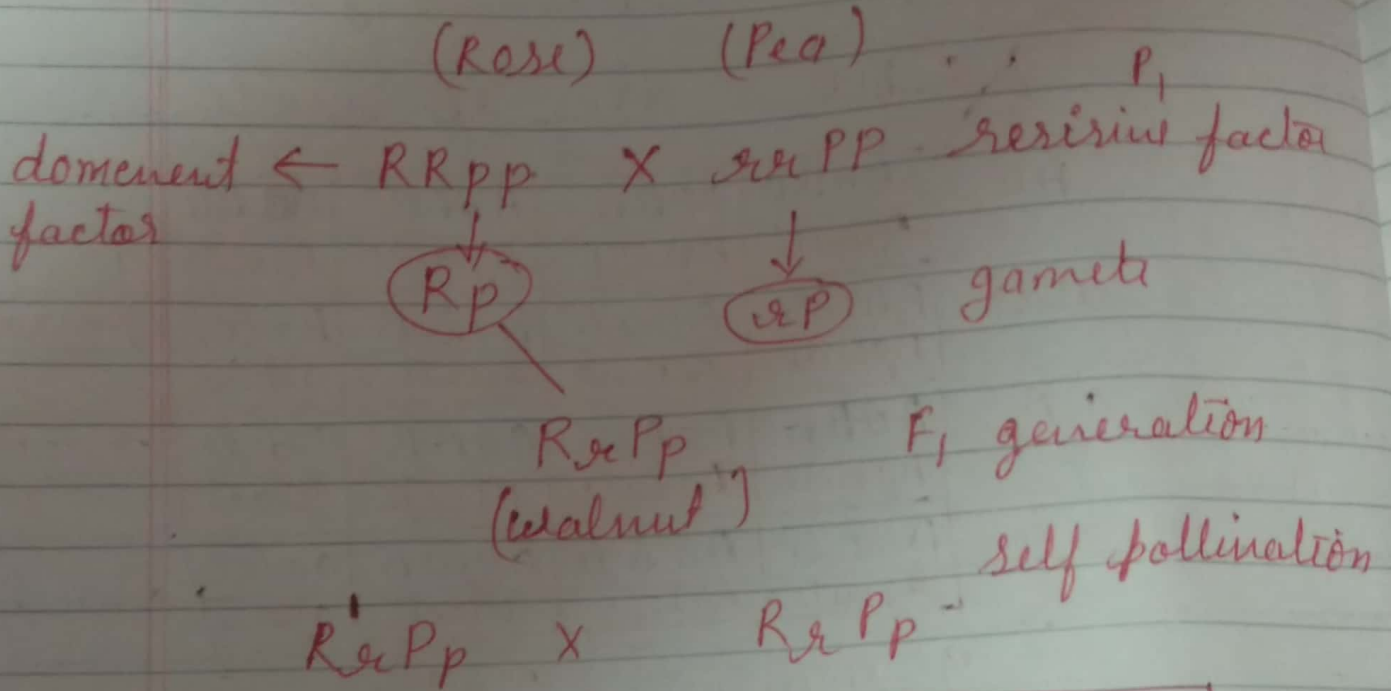 (Rose) (Pea) P1
domenent ← RRpp X rrPP resirive factor
factor
Rp rP gamete
RrPp F1 generation
(walnut)
self pollination
RrPp x RrPp